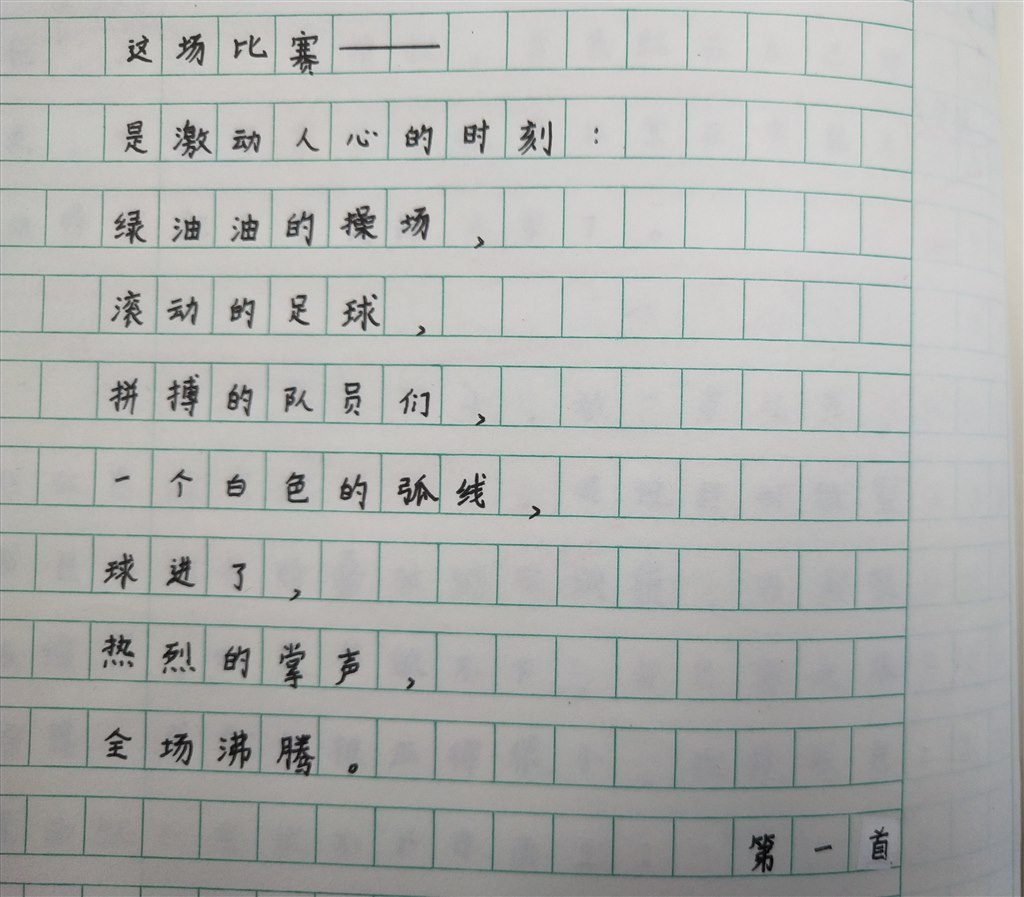 这场比赛——
是激动人心的时刻：
绿油油的操场，
滚动的足球，
拼搏的队员们，
一个白色的弧线，
球进了，
热烈的掌声，
全场沸腾。
第一首